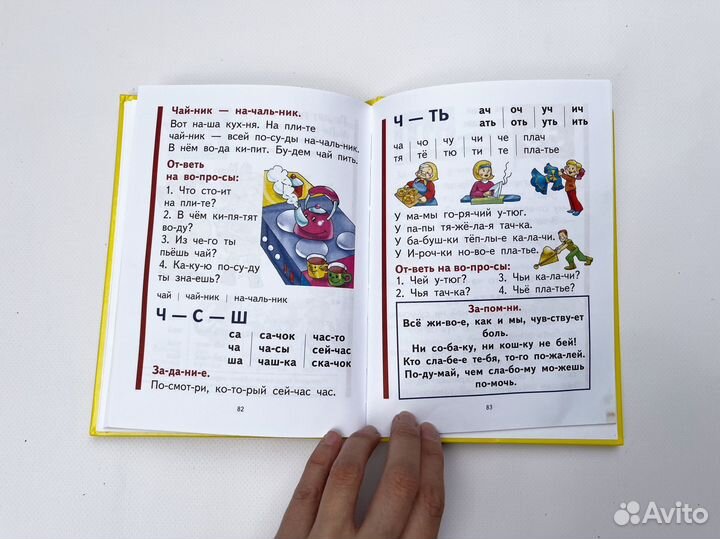 Чай-ник — на-чаль-ник.
Вот на-ша кух-ня. На пли-те
чай-ник — всей по-су-ды на-чаль-ник.
В нём во-да ки-пит. Бу-дем чай пить.
От-веть
на во-про-сы:
1. Что сто-ит
на пли-те?
2. В чём ки-пя-тят
во-ду?
3. Из че-го ты
пьёшь чай?
4. Ка-ку-ю по-су-ду
ты зна-ешь?
чай | чай-ник | на-чаль-ник
Ч — С — Ш
са са-чок час-то
ча ча-сы сей-час
ша чаш-ка ска-чок
За-да-ни-е.
По-смот-ри, ко-то-рый сей-час час.
82
Ч — ТЬ
ач оч уч ич
ать оть уть ить
ча чо чу чи че плач
тя тё тю ти те пла-тье
У ма-мы го-ря-чий у-тюг.
У па-пы тя-жё-ла-я тач-ка.
У ба-буш-ки тёп-лы-е ка-ла-чи.
У И-роч-ки но-во-е пла-тье.
От-веть на во-про-сы:
1. Чей у-тюг? 3. Чьи ка-ла-чи?
2. Чья тач-ка? 4. Чьё пла-тье?
За-пом-ни.
Всё жи-во-е, как и мы, чув-ству-ет
боль.
Ни со-ба-ку, ни кош-ку не бей!
Кто сла-бе-е те-бя, то-го по-жа-лей.
По-ду-май, чем сла-бо-му мо-жешь
по-мочь.
83
Avito